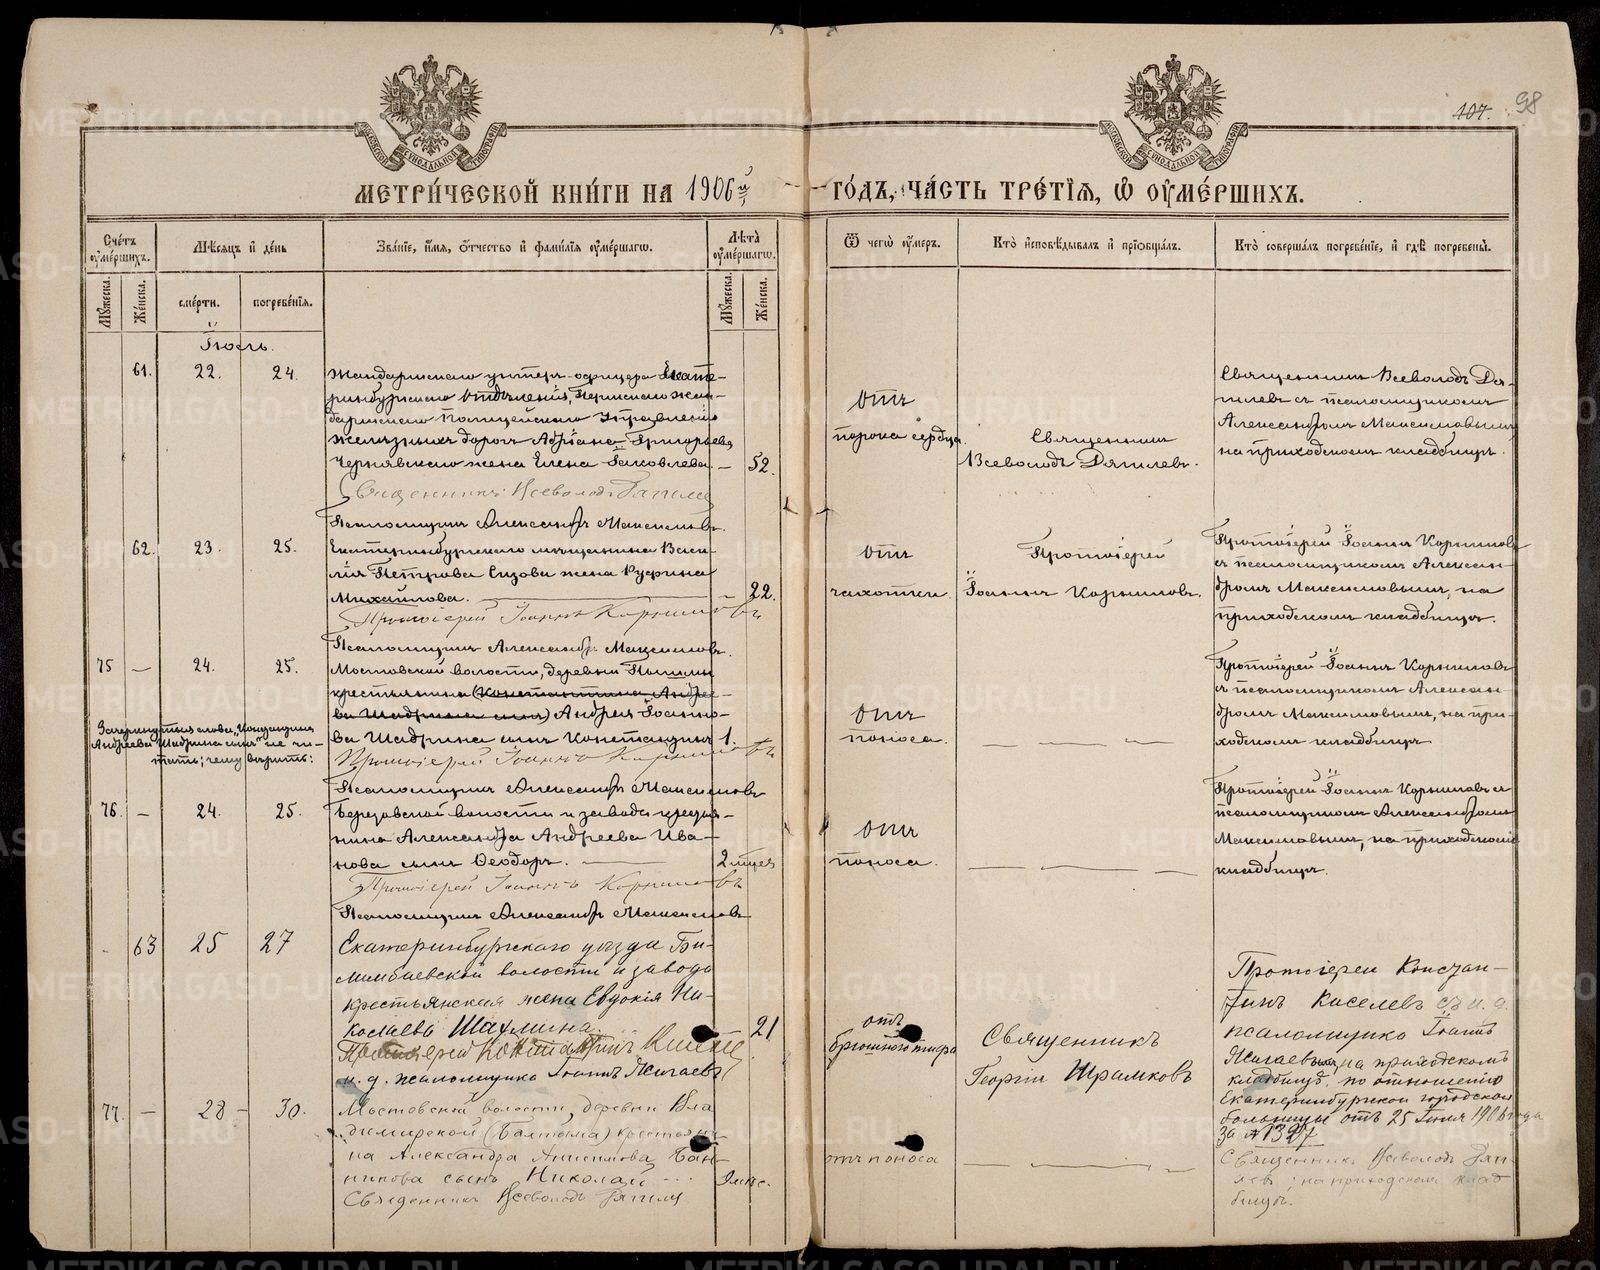 107. 98
МОСКОВСКОЙ СѴНОДАЛЬНОЙ ТИПОГРАФІИ
МОСКОВСКОЙ СѴНОДАЛЬНОЙ ТИПОГРАФІИ
МЕТРИ́ЧЕСКОЙ КНИ́ГИ НА 1906й
ГО́ДЪ, ЧА́СТЬ ТРЕ́ТІѦ, Ѡ ОУМЕ́РШИХЪ.
Сче́тъ оумершихъ.
Мѣсяцъ и де́нь
Зва́ніе, и́мя, о́тчество и фами́лія оуме́ршагѡ.
Лѣта̀ оуме́ршагѡ.
Ѿ чегѡ̀ оу́меръ.
Кто̀ и҆сповѣ́дывалъ и҆ прїѡбща́лъ.
Кто̀ соверша́лъ погребе́ніе, и҆ гдѣ̀ погребены̀.
Мꙋжеска.
Же́нска.
сме́рти.
погребе́нія.
Мꙋжеска.
Же́нска.
Іюль.
61. 22. 24.
Жандармскаго унтеръ-офицера Екате-
ринбургскаго отдѣленія, Пермскаго жан-
дармскаго Полицейскаго Управленія
желѣзныхъ дорогъ Адріана Григорьева
Чернявскаго жена Елена Іаковлева. – 52.
Священникъ Всеволодъ
Псаломщикъ Александръ Максимовъ.
Отъ
порока сердца.
Священникъ
Всеволодъ
Священникъ Всеволодъ
съ псаломщикомъ
Александромъ Максимовымъ,
на приходскомъ кладбищѣ.
62. 23. 25.
Екатеринбургскаго мѣщанина Васи-
лія Петрова жена Руфина
Михайлова. – 22.
Протоіерей Іоаннъ Корниловъ
Псаломщикъ Александръ Максимовъ.
отъ
чахотки.
Протоіерей
Іоаннъ Корниловъ.
Протоіерей Іоаннъ Корниловъ
съ псаломщикомъ Алексан-
дромъ Максимовымъ, на
приходскомъ кладбищѣ.
75 – 24. 25.
Мостовской волости, деревни Пышмы
крестьянина (Константина Андрее-
ва Шадрина сынъ) Андрея Іоанно-
ва Шадрина сынъ Константинъ 1.
Протоіерей Іоаннъ Корниловъ
Псаломщикъ Александръ Максимовъ
Зачеркнутыя слова „Константина
Андреева Шадрина сынъ" не чи-
тать;
отъ
поноса.
Протоіерей Іоаннъ Корниловъ
съ псаломщикомъ Алексан-
дромъ Максимовымъ, на при-
ходскомъ кладбищѣ
76. – 24. 25.
Березовской волости и завода крестья-
нина Александра Андреева Ива-
нова сынъ Ѳеодоръ.
Протоіерей Іоаннъ Корниловъ
Псаломщикъ Александръ Максимовъ
отъ
поноса.
Протоіерей Іоаннъ Корниловъ съ
псаломщикомъ Александромъ
Максимовымъ, на приходскомъ
кладбищѣ.
63 25 27
Екатеринбургскаго уѣзда Би-
лимбаевской волости и завода
крестьянская жена Евдокія Ни-
колаева Шахмина. 21
Протоіерей Константинъ
и. д. псаломщика Іоаннъ
отъ
брюшного тифа
Священникъ
Георгій Шрамковъ
Протоіерей Констан-
тинъ Киселевъ съ и. д.
псаломщика Іоанн
на приходскомъ
кладбищѣ, по отношенію
Екатеринбургской городской
больницы отъ 25 Іюля 1906 года
за № 1327
77. – 28 – 30.
Мостовской волости, деревни Вла-
димирской (Балтыма) крестьяни-
на Александра Анисимова Бан-
никова сынъ Николай
Священникъ Всеволодъ
отъ поноса
Священникъ Всеволодъ
на приходскомъ клад-
бищѣ.
METRIKI.GASO-URAL.RU